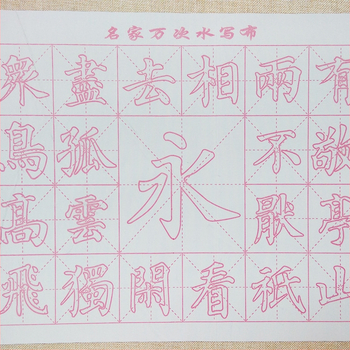 名家万次水写布
眾鳥髙飛
盡孤雲獨
去閑
永
相看
兩不厭祇
有敬亭山